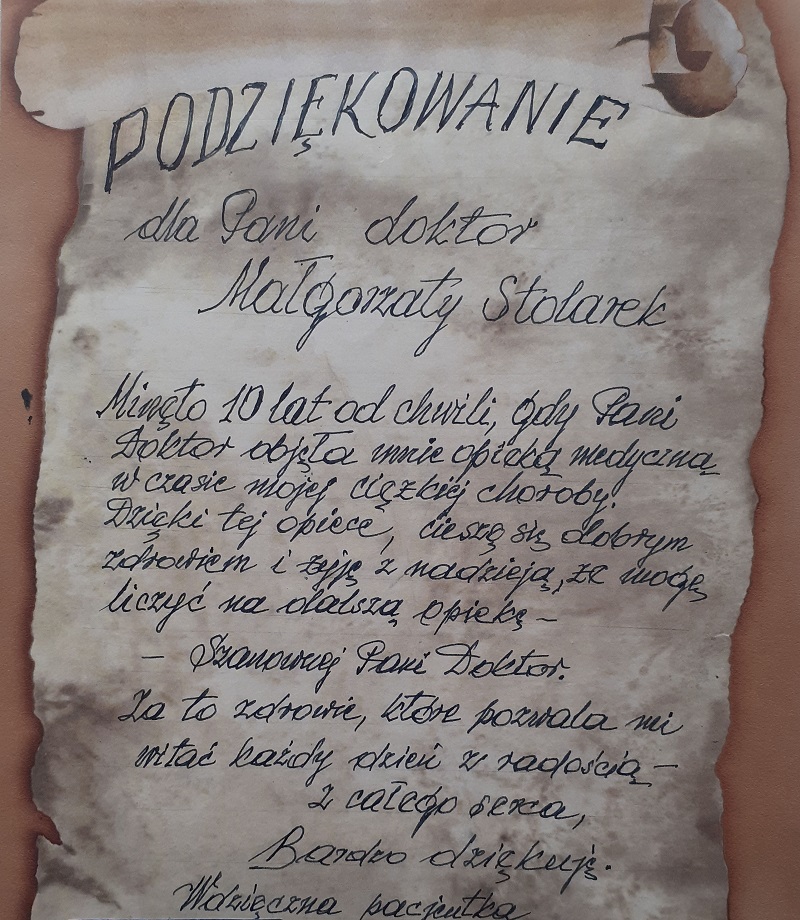 PODZIĘKOWANIE
dla Pani doktor
Małgorzaty Stolarek
Minęło 10 lat od chwili, gdy Pani
Doktor objęła mnie opieką medyczną
w czasie mojej ciężkiej choroby.
Dzięki tej opiece, cieszę się dobrym
zdrowiem i żyję z nadzieją, że mogę
liczyć na dalszą opiekę –
– Szanownej Pani Doktor.
Za to zdrowie, które pozwala mi
witać każdy dzień z radością –
z całego serca,
Bardzo dziękuję.
Wdzięczna pacjentka